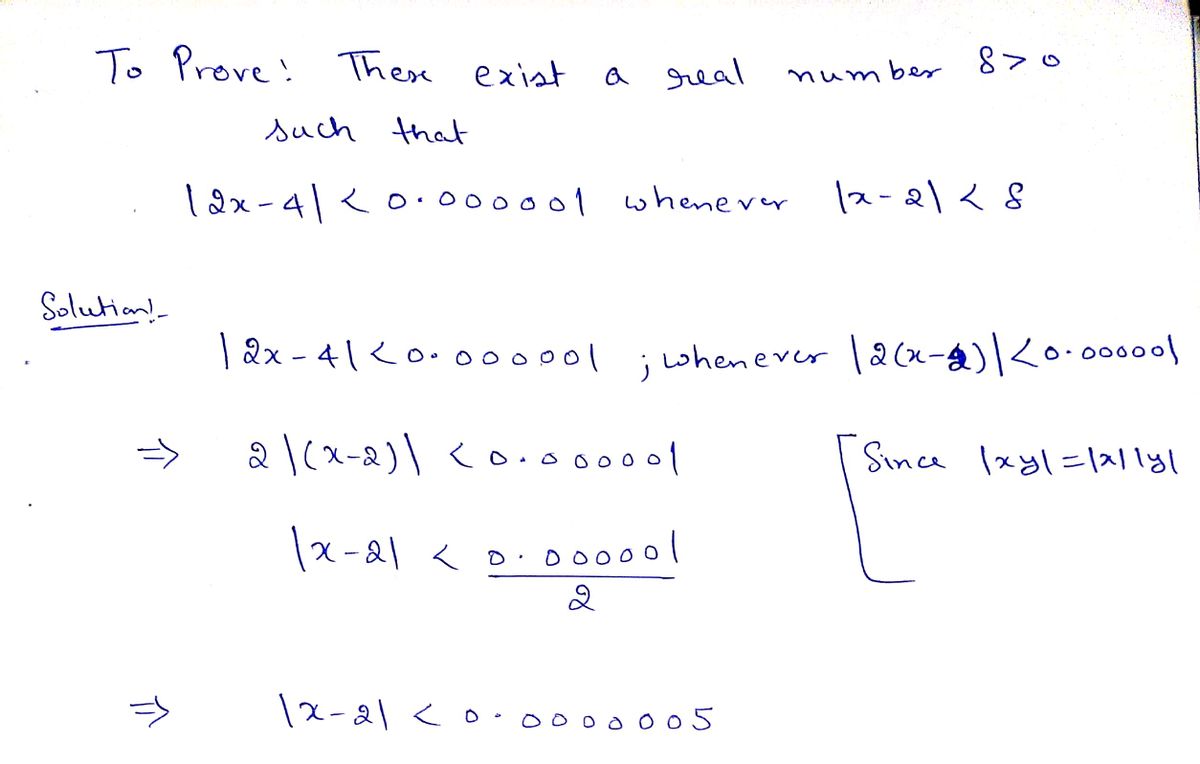 To Prove: There exist a real number δ>0
such that
|2x-4| < 0.000001 whenever |x-2| < δ
Solution:-
|2x-4| < 0.000001 ; whenever |2(x-2)| < 0.000001
⇒ 2|(x-2)| < 0.000001 [Since |xy|=|x||y|
|x-2| < 0.000001
2
⇒ |x-2| < 0.0000005